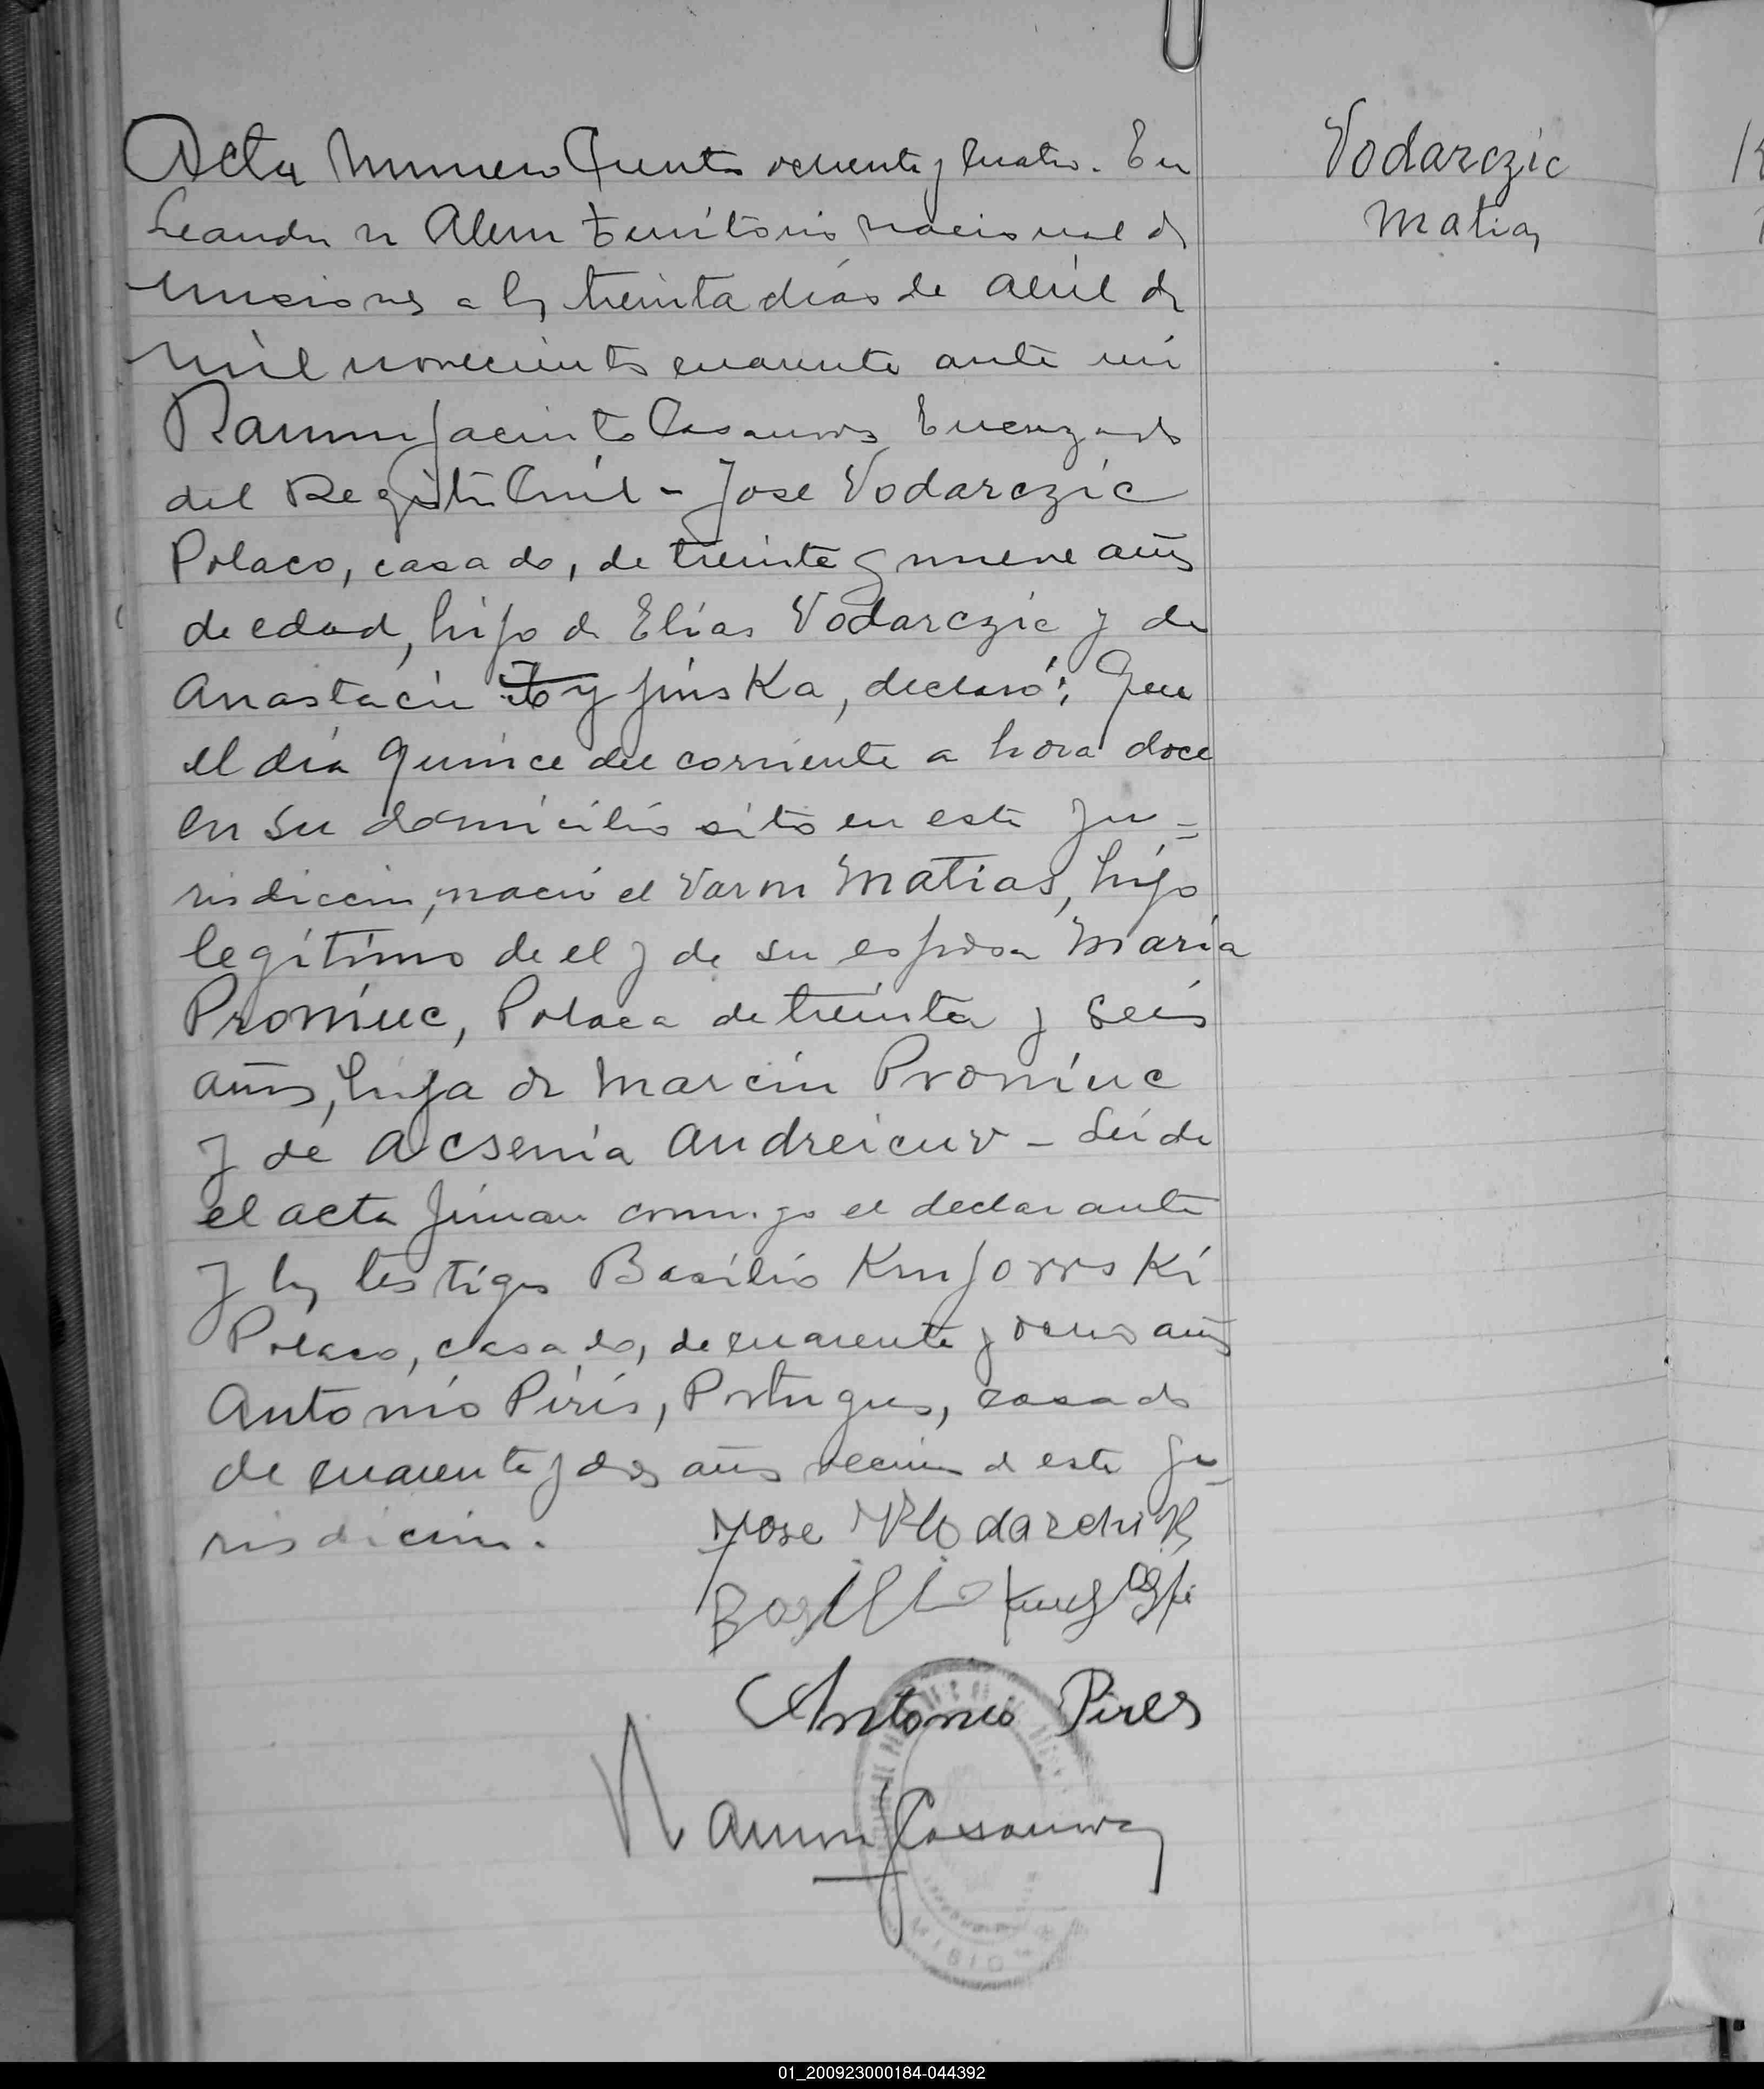 Acta Numero Ciento ochenta y cuatro. En
Leandro N Alem territorio nacional de
Misiones a los treinta dias de abril de
mil novecientos cuarenta ante mi
Ramon Jacinto Casanova Encargado
del Registro Civil - Jose Vodarczic
Polaco, casado, de treinta y nueve años
de edad, hijo de Elias Vodarczic y de
Anastacia declaró; Que
el día quince del corriente a hora doce
en su domicilio sito en esta Ju=
risdiccion, nació el varon Matias, hijo
legítimo de el y de su esposa Maria
Proniuc, Polaca de treinta y seis
años, hija de Marcin Proniuc
y de Acsenia Andreicuv - Leida
el acta firman conmigo el declarante
y los testigos Basilio
Polaco, casado, de cuarenta y ocho años
Antonio Piris, Portugues, casado
de cuarenta y dos años vecinos de esta Ju=
risdicion.
Jose Wlodarchik
Basilio
Antonio Pires
Ramon J Casanova
Vodarczic
Matias
01_200923000184-044392